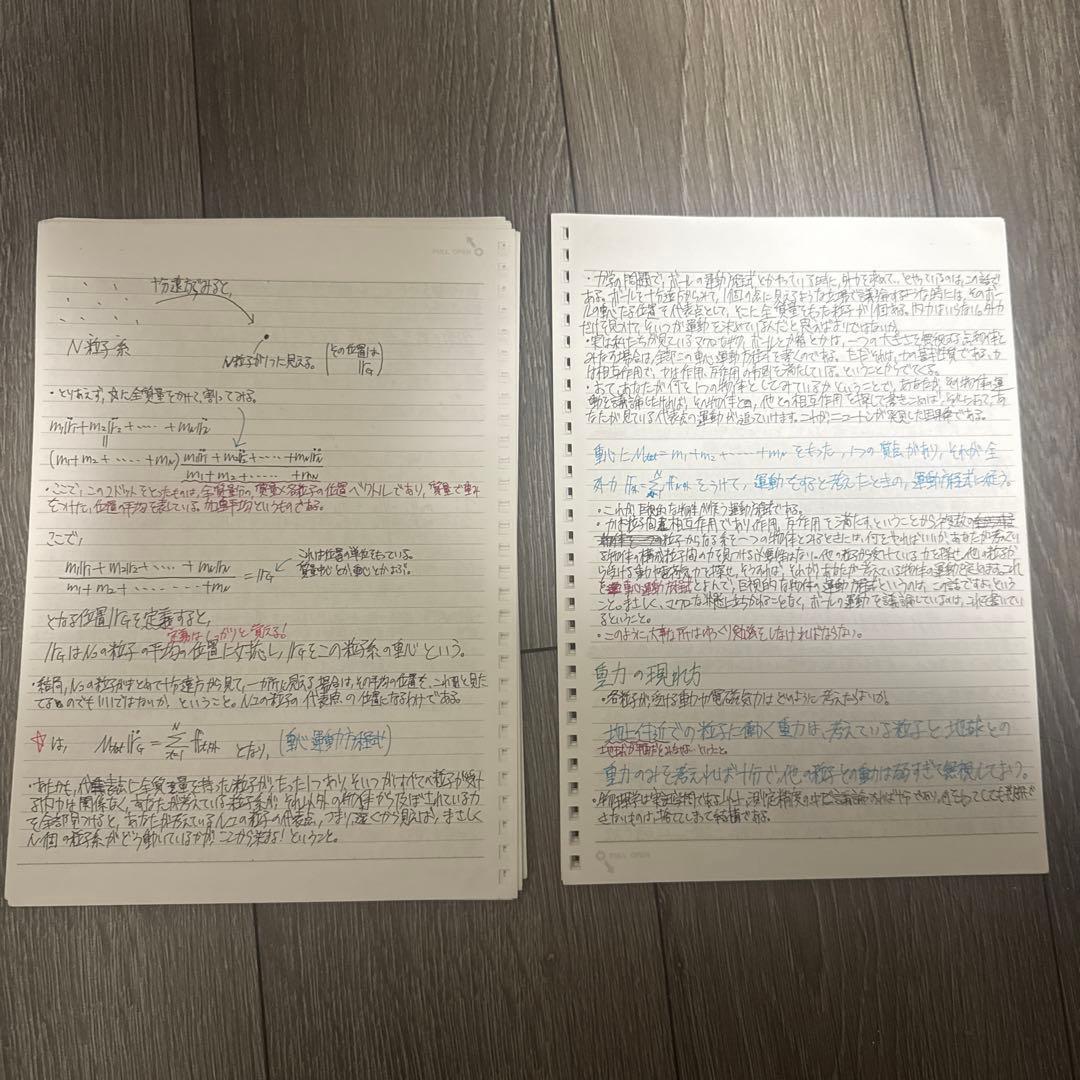 PULL OPEN
十分遠方でみると、
N粒子系
N粒子が1つに見える。
(その位置は
rG)
・とりあえず、文に全質量をかけて、割ってみる。
m1r̈1 + m2r̈2 + ‥‥ + mNr̈N
||
(m1 + m2 + ‥‥‥ + mN) m1r̈1 + m2r̈2 + ‥‥ + mNr̈N / m1 + m2 + ‥‥‥ + mN
・ここで、この2ドットをとったものは、全質量分の、質量×各粒子の位置ベクトルであり、質量で重み
をつけた、位置の平均を表している。加重平均というものである。
ここで、
m1r1 + m2r2 + ‥‥ + mNrN / m1 + m2 + ‥‥‥ + mN = rG
これは位置の単位をもっている。
質量中心とか重心とかよぶ。
となる位置rGを定義すると、
定義はしっかりと覚える!
rGはN個の粒子の平均の位置に対応し、rGをこの粒子系の重心という。
・結局、N個の粒子がまとめて十分遠方から見て、一か所に見える場合は、その平均の位置を、これ1個と見た
てるのでもいいではないか、ということ。N個の粒子の代表点の位置になるわけである
☆は、 Mtot r̈G = Σ f外 となり、(重心運動方程式)
・あたかも、代表点に全質量を持った粒子がたった1つあり、そいつがすべての粒子が受け
る内力は関係なく、あなたが考えている粒子系が、それ以外の物体から及ぼされている力
を全部見つけると、あなたが考えているN個の粒子の代表点、つまり、遠くから見れば、まさしく
N個の粒子系がどう動いているかが、ここから決まる!ということ。
・力学の問題で、ボールの運動方程式とかやっている時に、外力を求めて、とやっているのは、この話で
ある。ボールを十分遠方からみて、1個の点に見えるような立場で議論する
の重心たる位置を代表点として、そこに全質量をもった粒子が1個ある。内力はいらない。外力
だけを見つけて、そいつが運動を決めているんだと思えばよいではないか。
・実は私たちが見ているマクロな物、ボールとか箱とかは、一つの大きさを無視する点物体と
みなす場合は、全部この重心運動方程式を書くのである。ただそれは、力の基本性質である、力
は相互作用で、力は作用、反作用の法則を満たしている。ということからでてくる。
・さて、あなたが何を1つの物体としてみているかということで、あなたが、その物体の運
動を議論したければ、その物体と、他との相互作用を探して書きこめば、それによって、あ
なたが見ている代表点の運動が追っていけます。これが、ニュートンが発見した
重心にMtot = m1 + m2 + ‥‥‥ + mN をもった、1つの質点があり、それが全
外力 F外 = Σ f外 をうけて、運動をすると考えたときの、運動方程式に従う。
・これが、巨視的な物体が従う運動方程式である。
・力は粒子間相互作用であり作用、反作用を満たす、ということから
粒子からなる系を一つの物体とみるときには、何をやればいいか、あなたが考えて
る物体の構成粒子間の力を見つける必要はない。他の粒子から受けている力を探せ、他の粒子か
ら受ける重力や電磁気力を探せ、そうすれば、それがあなたが考えている物体の運動を定める。これ
を重心運動方程式とよんで、巨視的な物体の運動方程式というのは、この話ですよ。という
こと。まさしく、マクロな状態に立ちかえることなく、ボールの運動を議論しているのは、これを書いてい
るということ。
・このように、大事な所はゆっくり勉強をしなければならない。
重力の現れ方
・各粒子が受ける重力や電磁気力はどのように考えたらよいか。
地上付近での粒子に働く重力は、考えている粒子と地球との
地球が平面とみなせる、ということ。
重力のみを考えれば十分で、他の粒子との重力は弱すぎて無視してよい。
・物理学は実証学問である以上、測定精度の中で議論すれば十分であり、
きないものは、捨ててしまって結構である。
PULL OPEN